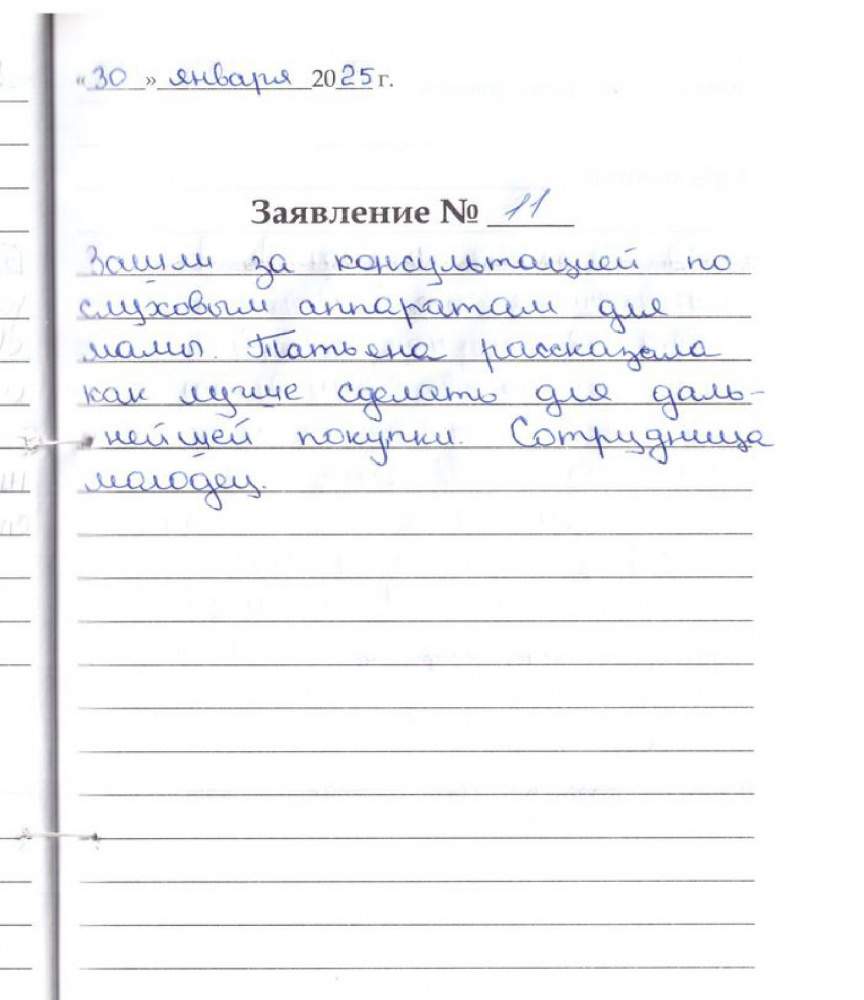 «30» января 2025 г.
Заявление № 11
Зашли за консультацией по
слуховым аппаратам для
мамы. Татьяна рассказала
как лучше сделать для даль-
нейшей покупки. Сотрудница
молодец.